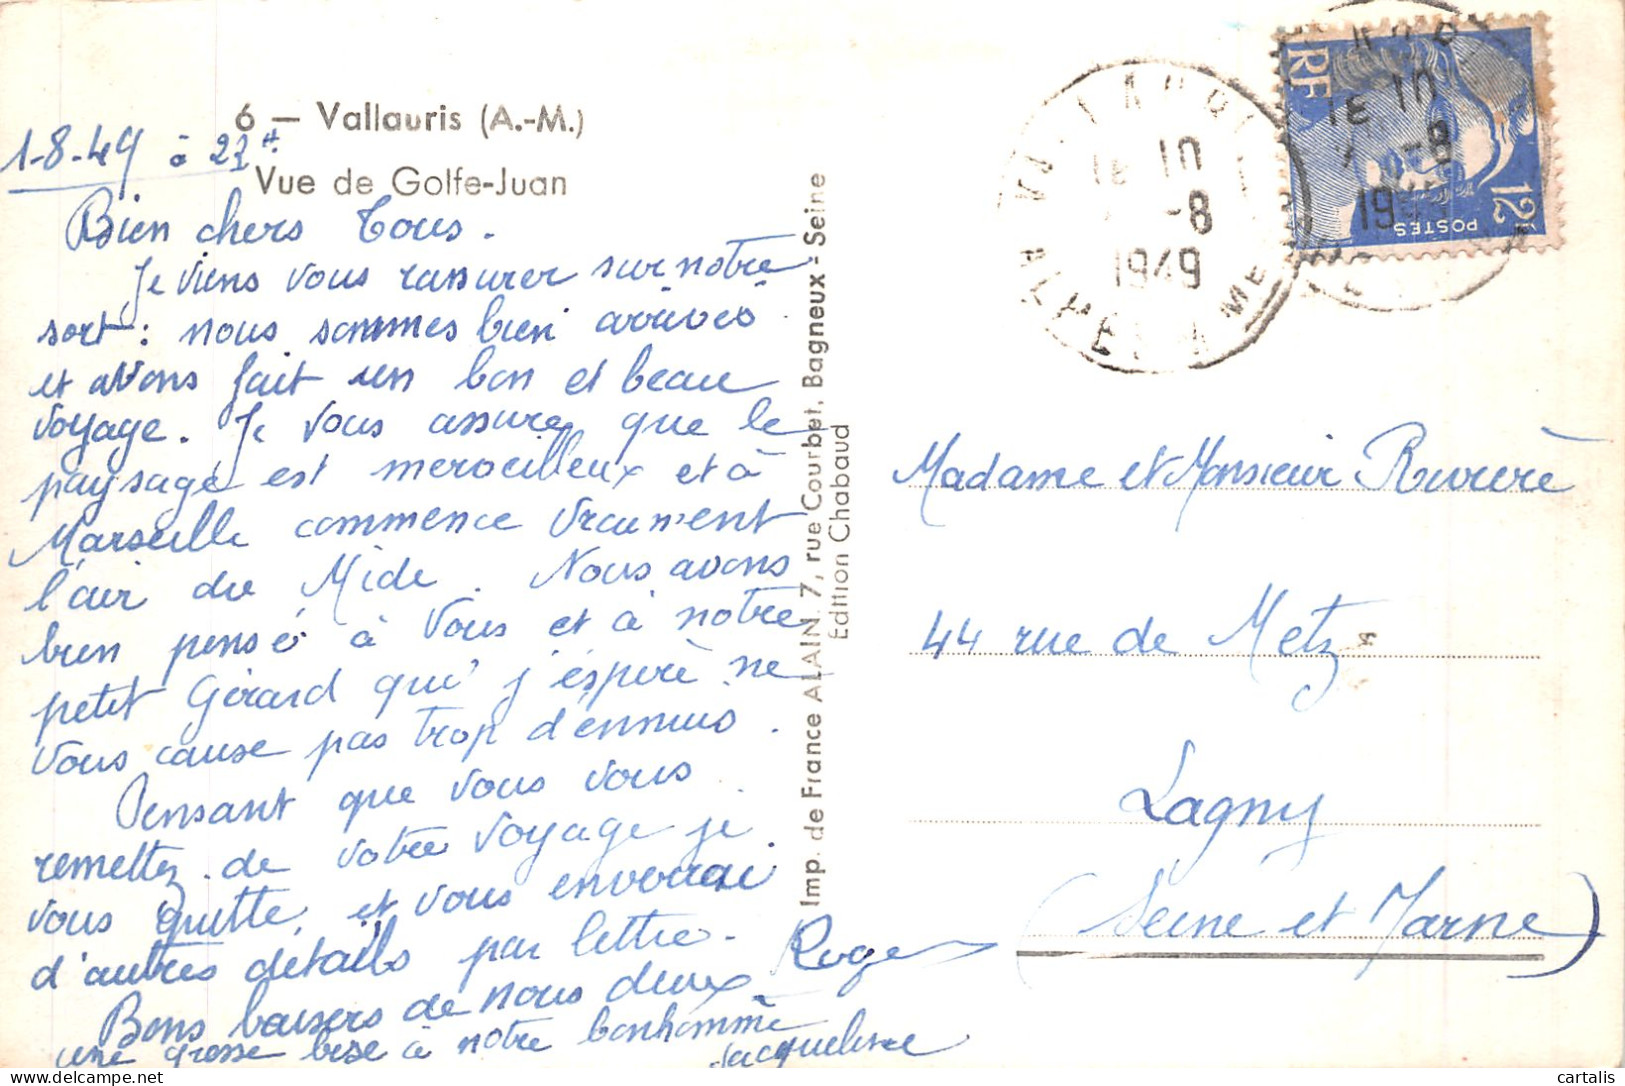 6 — Vallauris (A.-M.)
Vue de Golfe-Juan
1-8-49 à 22H.
Bien chers Tous.
Je viens vous rassurer sur notre
sort : nous sommes bien arrivés
et avons fait un bon et beau
voyage. Je vous assure que le
paysage est merveilleux et à
Marseille commence vraiment
l'air du Midi. Nous avons
bien pensé à vous et à notre
petit Gérard qui j'espère ne
vous cause pas trop d'ennuis.
Pensant que vous vous
remettez de votre voyage je
vous quitte, et vous enverrai
d'autres détails par lettre.
Bons baisers de nous deux Roger
une grosse bise à notre bonhomme
Jacqueline
Imp. de France ALAIN, 7, rue Courbet, Bagneux - Seine
Edition Chabaud
VALLAURIS
18 10
-8
1949
ALPES MME
RF
POSTES
12F
18 10
-8
19
Madame et Monsieur Rivière
44 rue de Metz
Lagny
(Seine et Marne)
cartalis